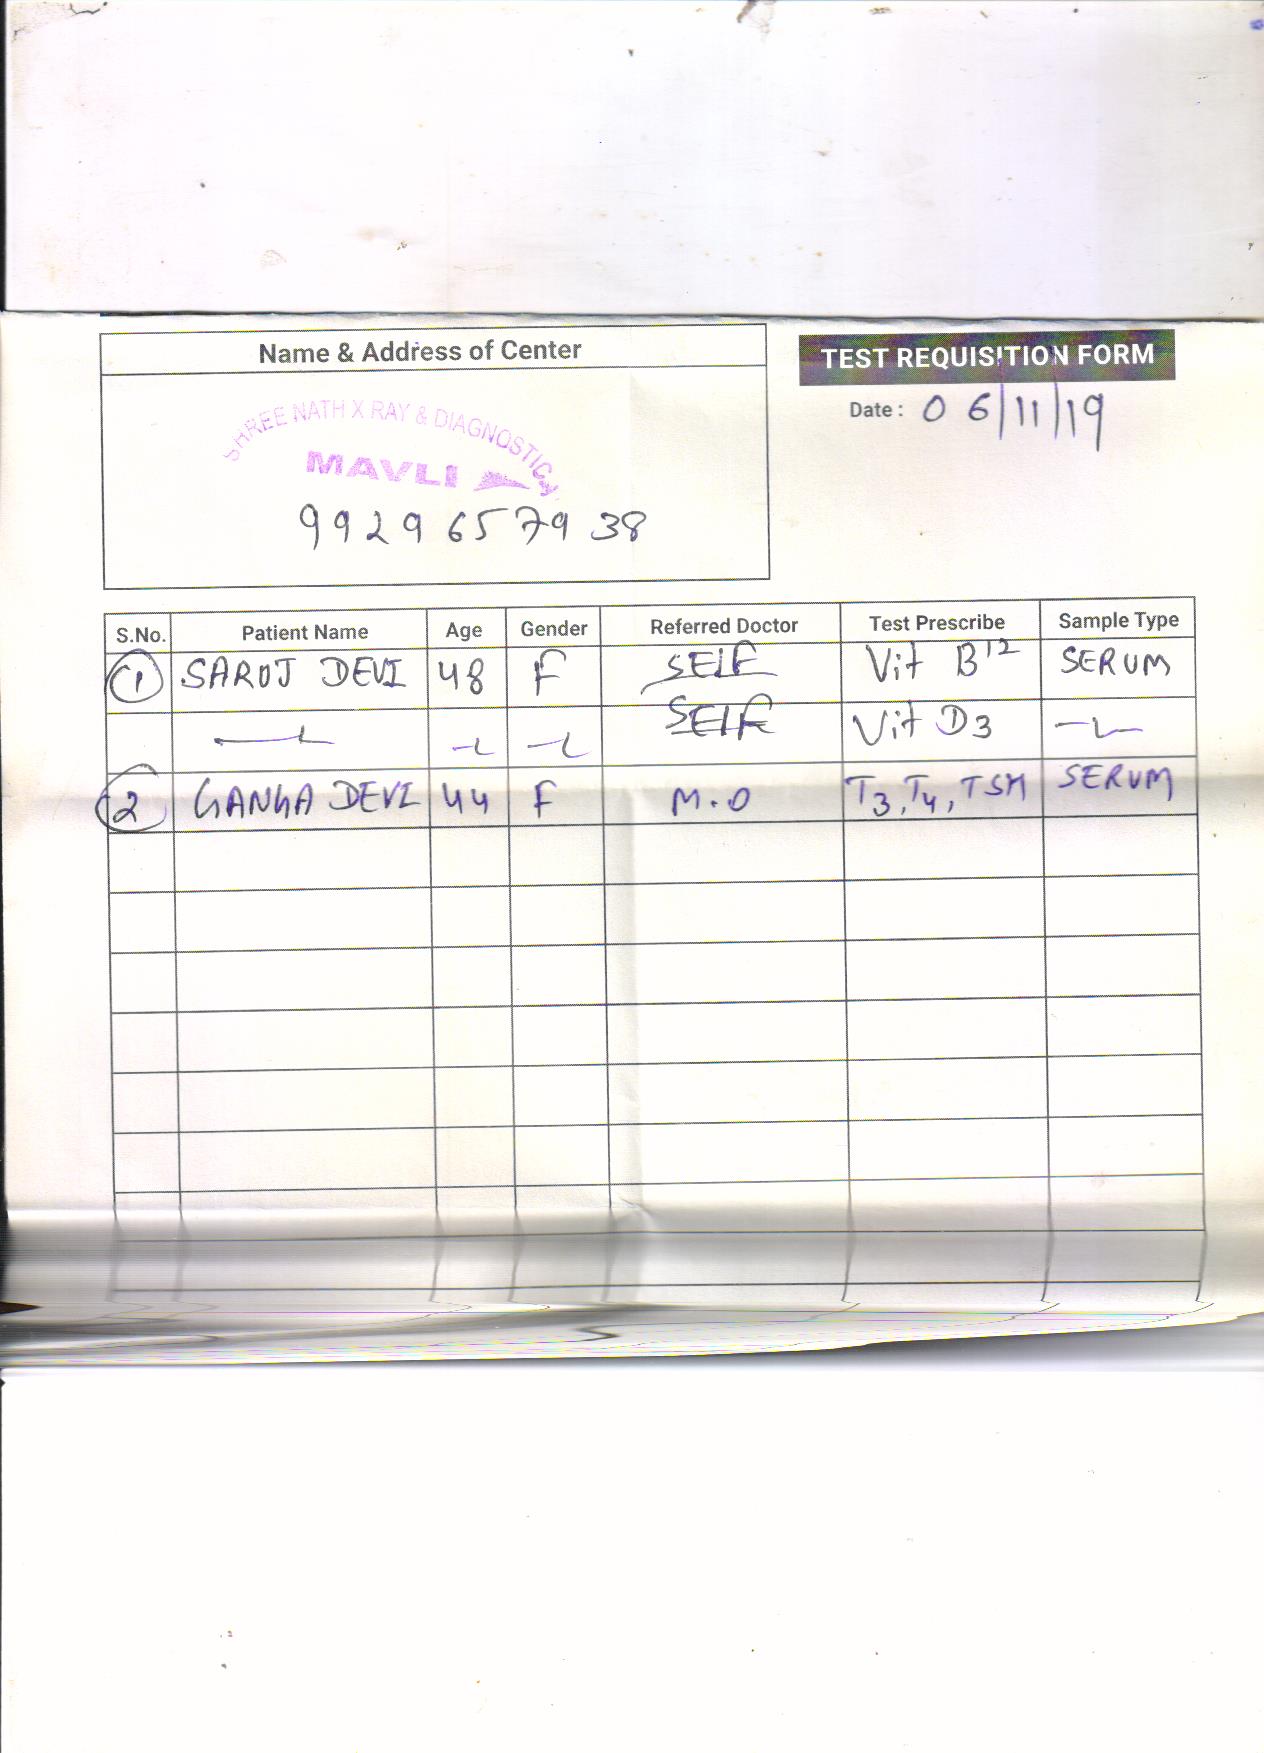 Name & Address of Center
TEST REQUISITION FORM
Date : 06/11/19
SHREE NATH X RAY & DIAGNOSTIC
MAVLI
9929657938
S.No. Patient Name Age Gender Referred Doctor Test Prescribe Sample Type
1 SAROJ DEVI 48 F SELF Vit B12 SERUM
SELF Vit D3
2 GANGA DEVI 44 F M.O T3, T4, TSH SERUM